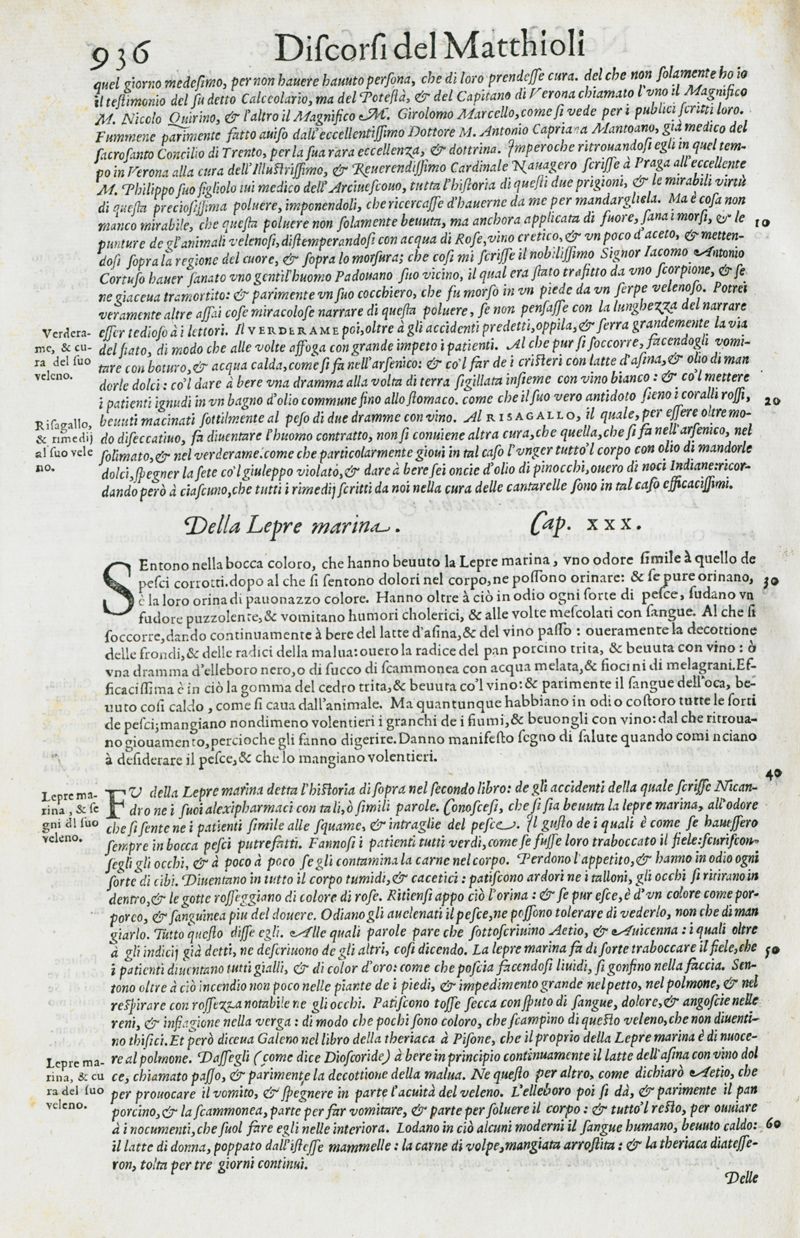 936
Discorsi del Matthioli
quel giorno medesimo, per non hauere hauuto persona, che di loro prendesse cura. del che non solamente ho io
il testimonio del su detto Calceolario, ma del Potestà, & del Capitano di Verona chiamato l'vno il Magnifico
M. Nicolo Quirino, & l'altro il Magnifico M. Girolomo Marcello, come si vede per i publici scritti loro.
Fummene parimente fatto auiso dall'eccellentissimo Dottore M. Antonio Capriana Mantoano, già medico del
sacrosanto Concilio di Trento, per la sua rara eccellenza, & dottrina. Imperoche ritrouandosi egli in quel tem-
po in Verona alla cura dell'Illustrissimo, & Reuerendissimo Cardinale Nauagero scrisse à Praga all'eccellente
M. Philippo suo figliolo iui medico dell'Arciuescouo, tutta l'historia di questi due prigioni, & le mirabili virtù
di questa preciosissima poluere, imponendoli, che ricercasse d'hauerne da me per mandargliela. Ma è cosa non
manco mirabile, che questa poluere non solamente beuuta, ma anchora applicata di fuore, sana i morsi, & le
10
punture de gl'animali velenosi, distemperandosi con acqua di Rose, vino cretico, & vn poco d'aceto, & metten-
dosi sopra la regione del cuore, & sopra lo morsura; che cosi mi scrisse il nobilissimo Signor Iacomo Antonio
Cortuso hauer sanato vno gentil'huomo Padouano suo vicino, il qual era stato trafitto da vno scorpione, & se
ne giaceua tramortito: & parimente vn suo cocchiero, che fu morso in vn piede da vn serpe velenoso. Potrei
veramente altre assai cose miracolose narrare di questa poluere, se non pensasse con la lunghezza del narrare
Verdera-
me, & cu-
ra del suo
veleno.
esser tedioso à i lettori. Il VERDERAME poi, oltre à gli accidenti predetti, oppila, & serra grandemente la via
del fiato, di modo che alle volte affoga con grande impeto i patienti. Al che pur si soccorre, facendogli vomi-
tare con boturo, & acqua calda, come si fa nell'arsenico: & co'l far de i cristeri con latte d'asina, & olio di man
dorle dolci: co'l dare à bere vna dramma alla volta di terra sigillata insieme con vino bianco: & co'l mettere
i patienti ignudi in vn bagno d'olio commune fino allo stomaco. come che il suo vero antidoto sieno i coralli rossi,
20
Risagallo,
& rimedij
al suo vele
no.
beuuti macinati sottilmente al peso di due dramme con vino. Al RISAGALLO, il quale, per essere oltre mo-
do disseccatiuo, fa diuentare l'huomo contratto, non si conuiene altra cura, che quella, che si fa nell'arsenico, nel
solimato, & nel verderame. come che particolarmente gioui in tal caso l'vnger tutto'l corpo con olio di mandorle
dolci, spegner la sete co'l giuleppo violato, & dare à bere sei oncie d'olio di pinocchi, ouero di noci Indiane: ricor-
dando però à ciascuno, che tutti i rimedij scritti da noi nella cura delle cantarelle sono in tal caso efficacissimi.
Della Lepre marina. Cap. XXX.
SEntono nella bocca coloro, che hanno beuuto la Lepre marina, vno odore simile à quello de
pesci corrotti. dopo al che si sentono dolori nel corpo, ne possono orinare: & se pure orinano,
30
è la loro orina di pauonazzo colore. Hanno oltre à ciò in odio ogni sorte di pesce, sudano vn
sudore puzzolente, & vomitano humori cholerici, & alle volte mescolati con sangue. Al che si
soccorre, dando continuamente à bere del latte d'asina, & del vino passo: oueramente la decottione
delle frondi, & delle radici della malua: ouero la radice del pan porcino trita, & beuuta con vino: ò
vna dramma d'elleboro nero, o di succo di scammonea con acqua melata, & fiocini di melagrani. Ef-
ficacissima è in ciò la gomma del cedro trita, & beuuta co'l vino: & parimente il sangue dell'oca, be-
uuto cosi caldo, come si caua dall'animale. Ma quantunque habbiano in odio costoro tutte le sorti
de pesci; mangiano nondimeno volentieri i granchi de i fiumi, & beuongli con vino: dal che ritroua-
no giouamento, percioche gli fanno digerire. Danno manifesto segno di salute quando cominciano
à desiderare il pesce, & che lo mangiano volentieri.
40
Lepre ma-
rina, & se
gni di suo
veleno.
FV della Lepre marina detta l'historia di sopra nel secondo libro: de gli accidenti della quale scrisse Nican-
dro ne i suoi alexipharmaci con tali, ò simili parole. Conoscesi, che si sia beuuta la lepre marina, all'odore
che si sente ne i patienti simile alle squame, & intraglie del pesce. Il gusto de i quali è come se hauessero
sempre in bocca pesci putrefatti. Fannosi i patienti tutti verdi, come se fusse loro traboccato il fiele: scuriscon-
segli gli occhi, & à poco à poco se gli contamina la carne nel corpo. Perdono l'appetito, & hanno in odio ogni
sorte di cibi. Diuentano in tutto il corpo tumidi, & cacetici: patiscono ardori ne i talloni, gli occhi si ritirano in
dentro, & le gotte rosseggiano di colore di rose. Ritiensi appo ciò l'orina: & se pur esce, è d'vn colore come por-
poreo, & sanguinea piu del douere. Odiano gli auelenati il pesce, ne possono tolerare di vederlo, non che di man
giarlo. Tutto questo disse egli. Alle quali parole pare che sottoscriuino Aetio, & Auicenna: i quali oltre
à gli indicij già detti, ne descriuono de gli altri, cosi dicendo. La lepre marina fa di sorte traboccare il fiele, che
50
i patienti diuentano tutti gialli, & di color d'oro: come che poscia facendosi liuidi, si gonfino nella faccia. Sen-
tono oltre à ciò incendio non poco nelle piante de i piedi, & impedimento grande nel petto, nel polmone, & nel
respirare con rossezza notabile ne gli occhi. Patiscono tosse secca con sputo di sangue, dolore, & angoscie nelle
reni, & infiagione nella verga: di modo che pochi sono coloro, che scampino di questo veleno, che non diuenti-
no thisici. Et però diceua Galeno nel libro della theriaca à Pisone, che il proprio della Lepre marina è di nuoce-
Lepre ma-
rina, & cu
ra del suo
veleno.
re al polmone. Dassegli (come dice Dioscoride) à bere in principio continuamente il latte dell'asina con vino dol
ce, chiamato passo, & parimente la decottione della malua. Ne questo per altro, come dichiarò Aetio, che
per prouocare il vomito, & spegnere in parte l'acuità del veleno. L'elleboro poi si dà, & parimente il pan
porcino, & la scammonea, parte per far vomitare, & parte per soluere il corpo: & tutto'l resto, per ouuiare
à i nocumenti, che suol fare egli nelle interiora. Lodano in ciò alcuni moderni il sangue humano, beuuto caldo:
60
il latte di donna, poppato dall'istesse mammelle: la carne di volpe, mangiata arrostita: & la theriaca diatesse-
ron, tolta per tre giorni continui.
Delle